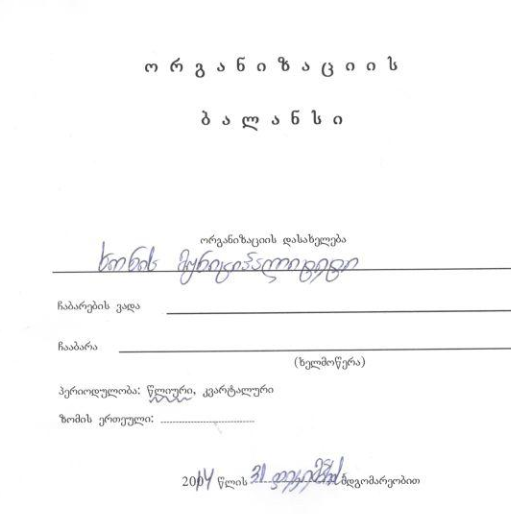 ორგანიზაციის
ბალანსი
ორგანიზაციის დასახელება
ხონის მუნიციპალიტეტი
ჩაბარების ვადა
ჩააბარა
(ხელმოწერა)
პერიოდულობა: წლიური, კვარტალური
ზომის ერთეული:
2014 წლის 31 დეკემბრის მდგომარეობით